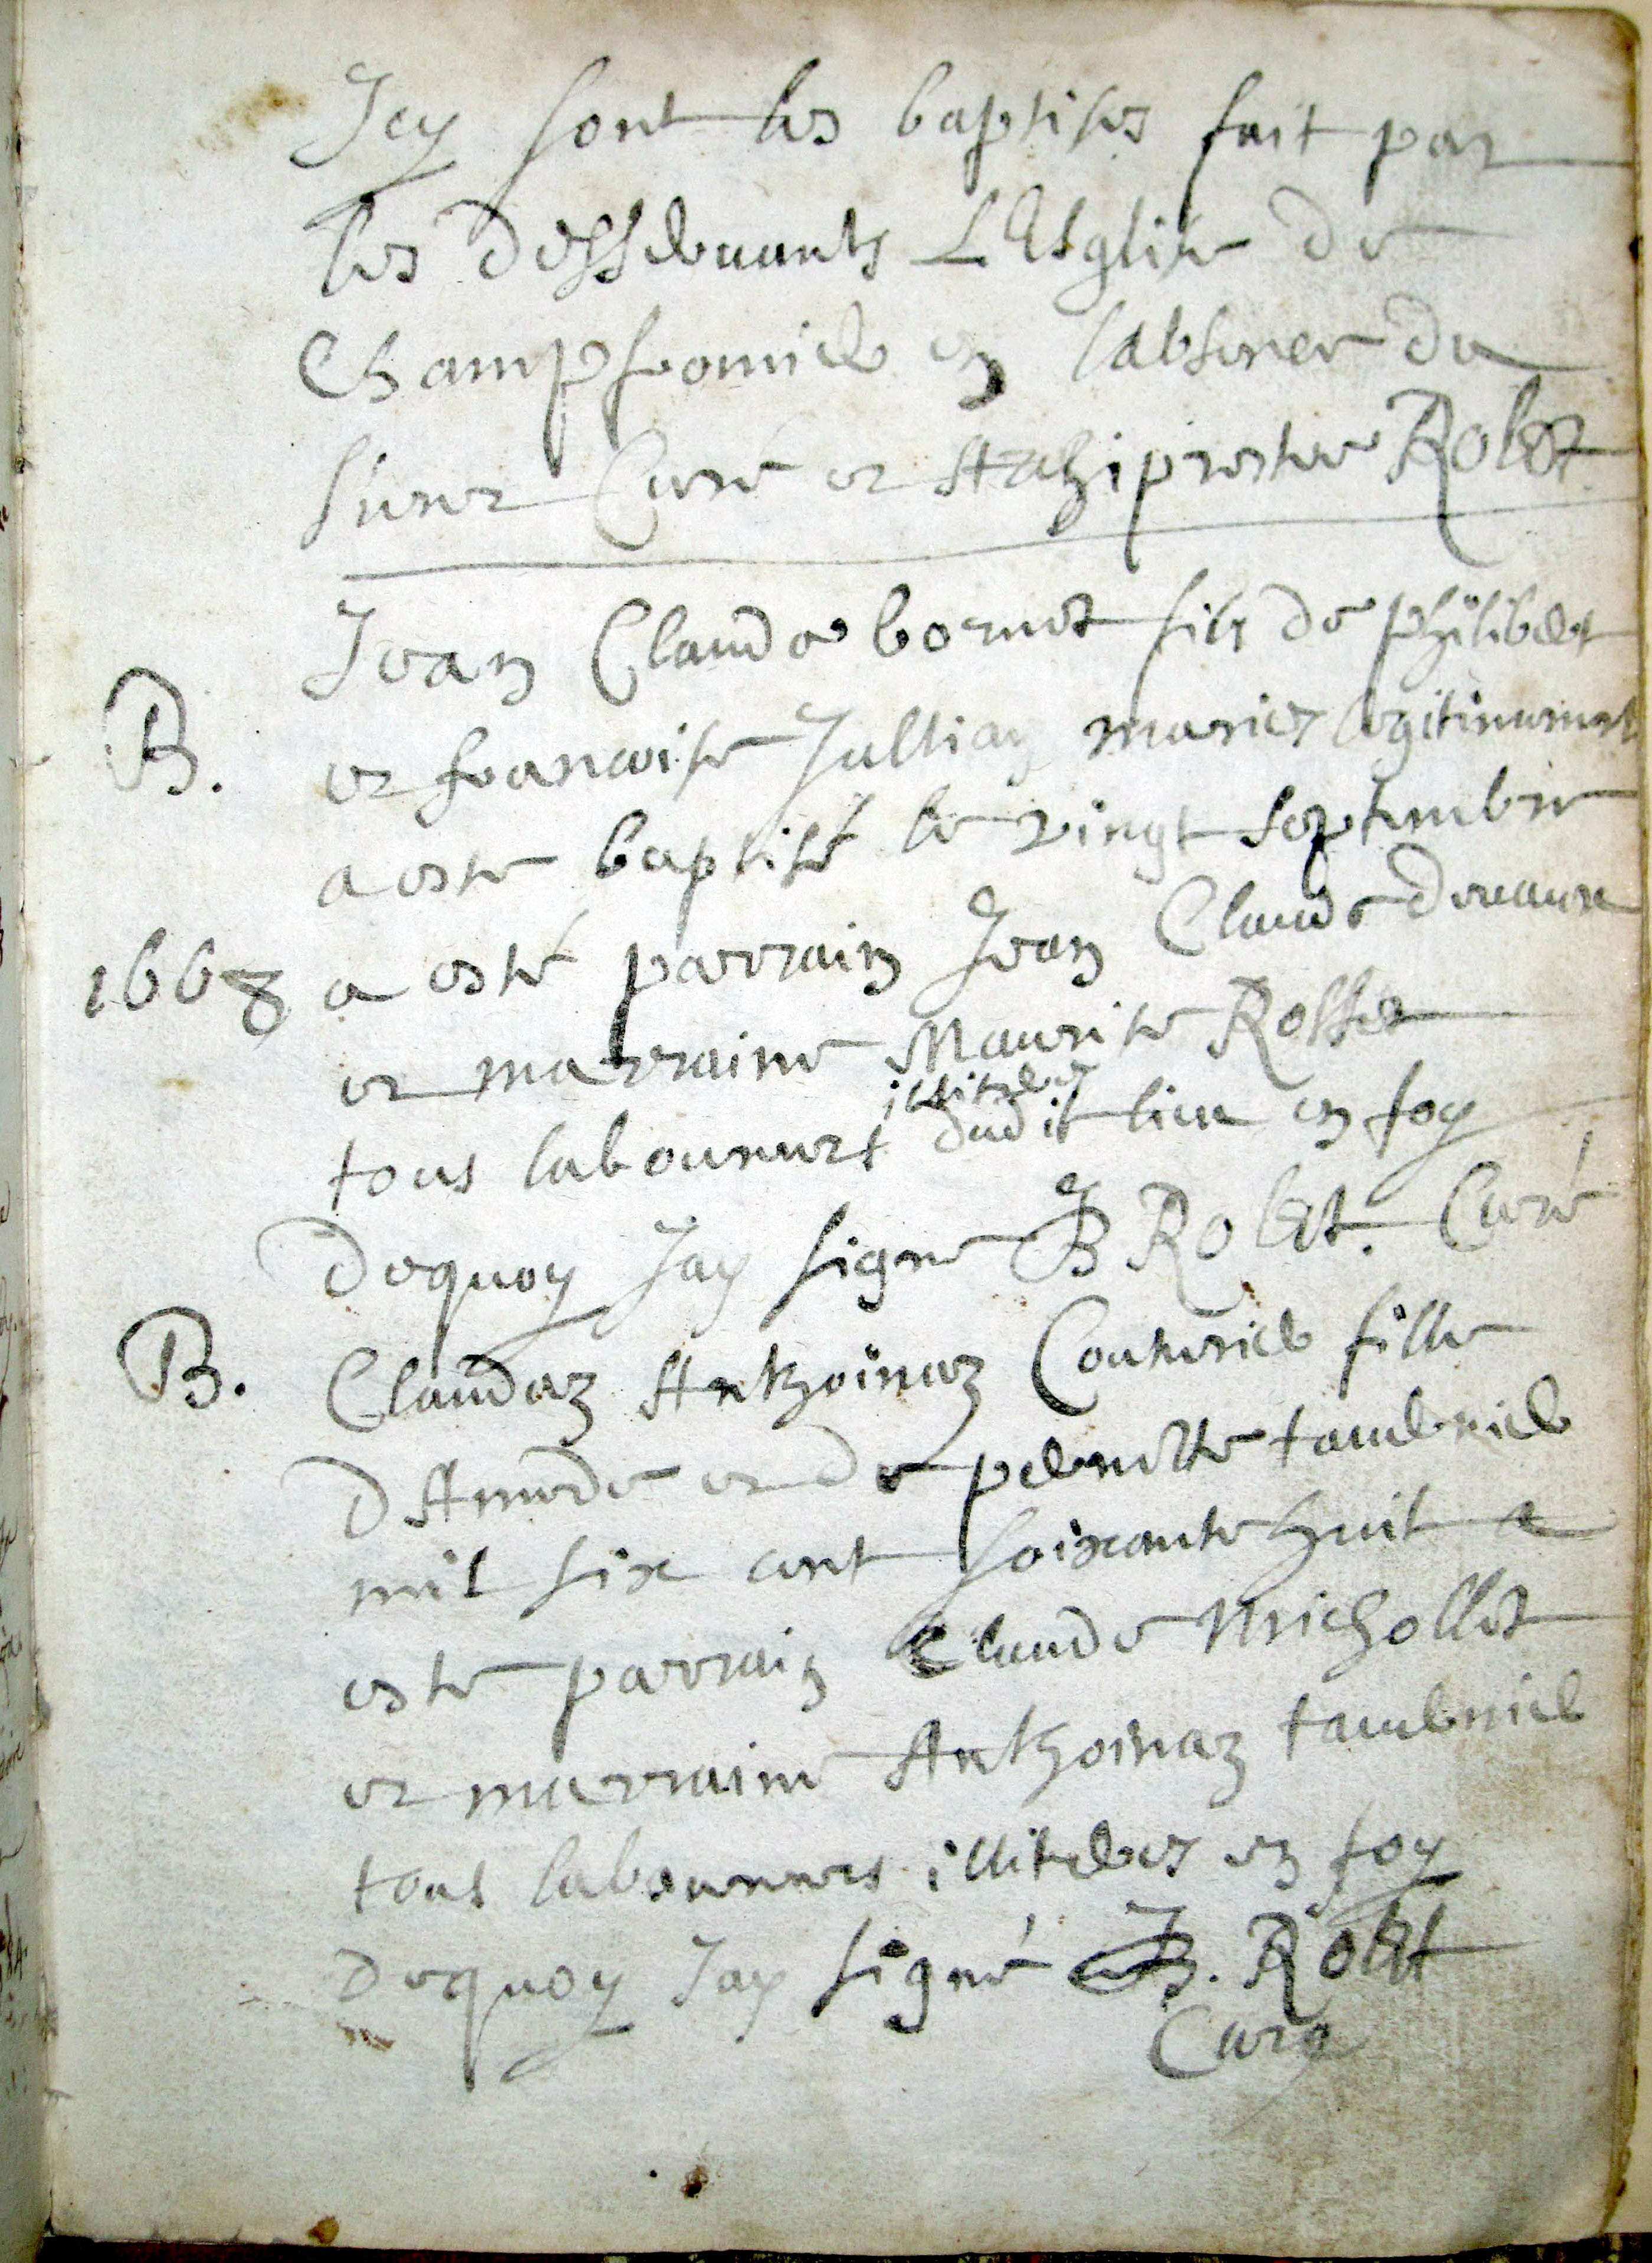 Icy sont les baptises fait par
les desseruants LEsglise de
Champfromier en labsence du
sieur Curé et Archiprestre Robert
Jean Claude bornet fils de philibert
B. et francoise Jullian mariez legitimement
a este baptisé le vingt septembre
1668 a esté parrain Jean Claude deuaux
et marraine Maurise Rosset
illiterez
tous laboureurs dudit lieu en foy
dequoy Jay signe JB Robert. Curé
B. Claudaz Anthoinaz Couturier fille
dAmede et de pernette tauernier
mil six cent soixante huit a
este parrain Claude Michollet
et marraine Anthoinaz tauernier
tous laboureurs illiterez en foy
dequoy Jay signé JB. Robert
Cure